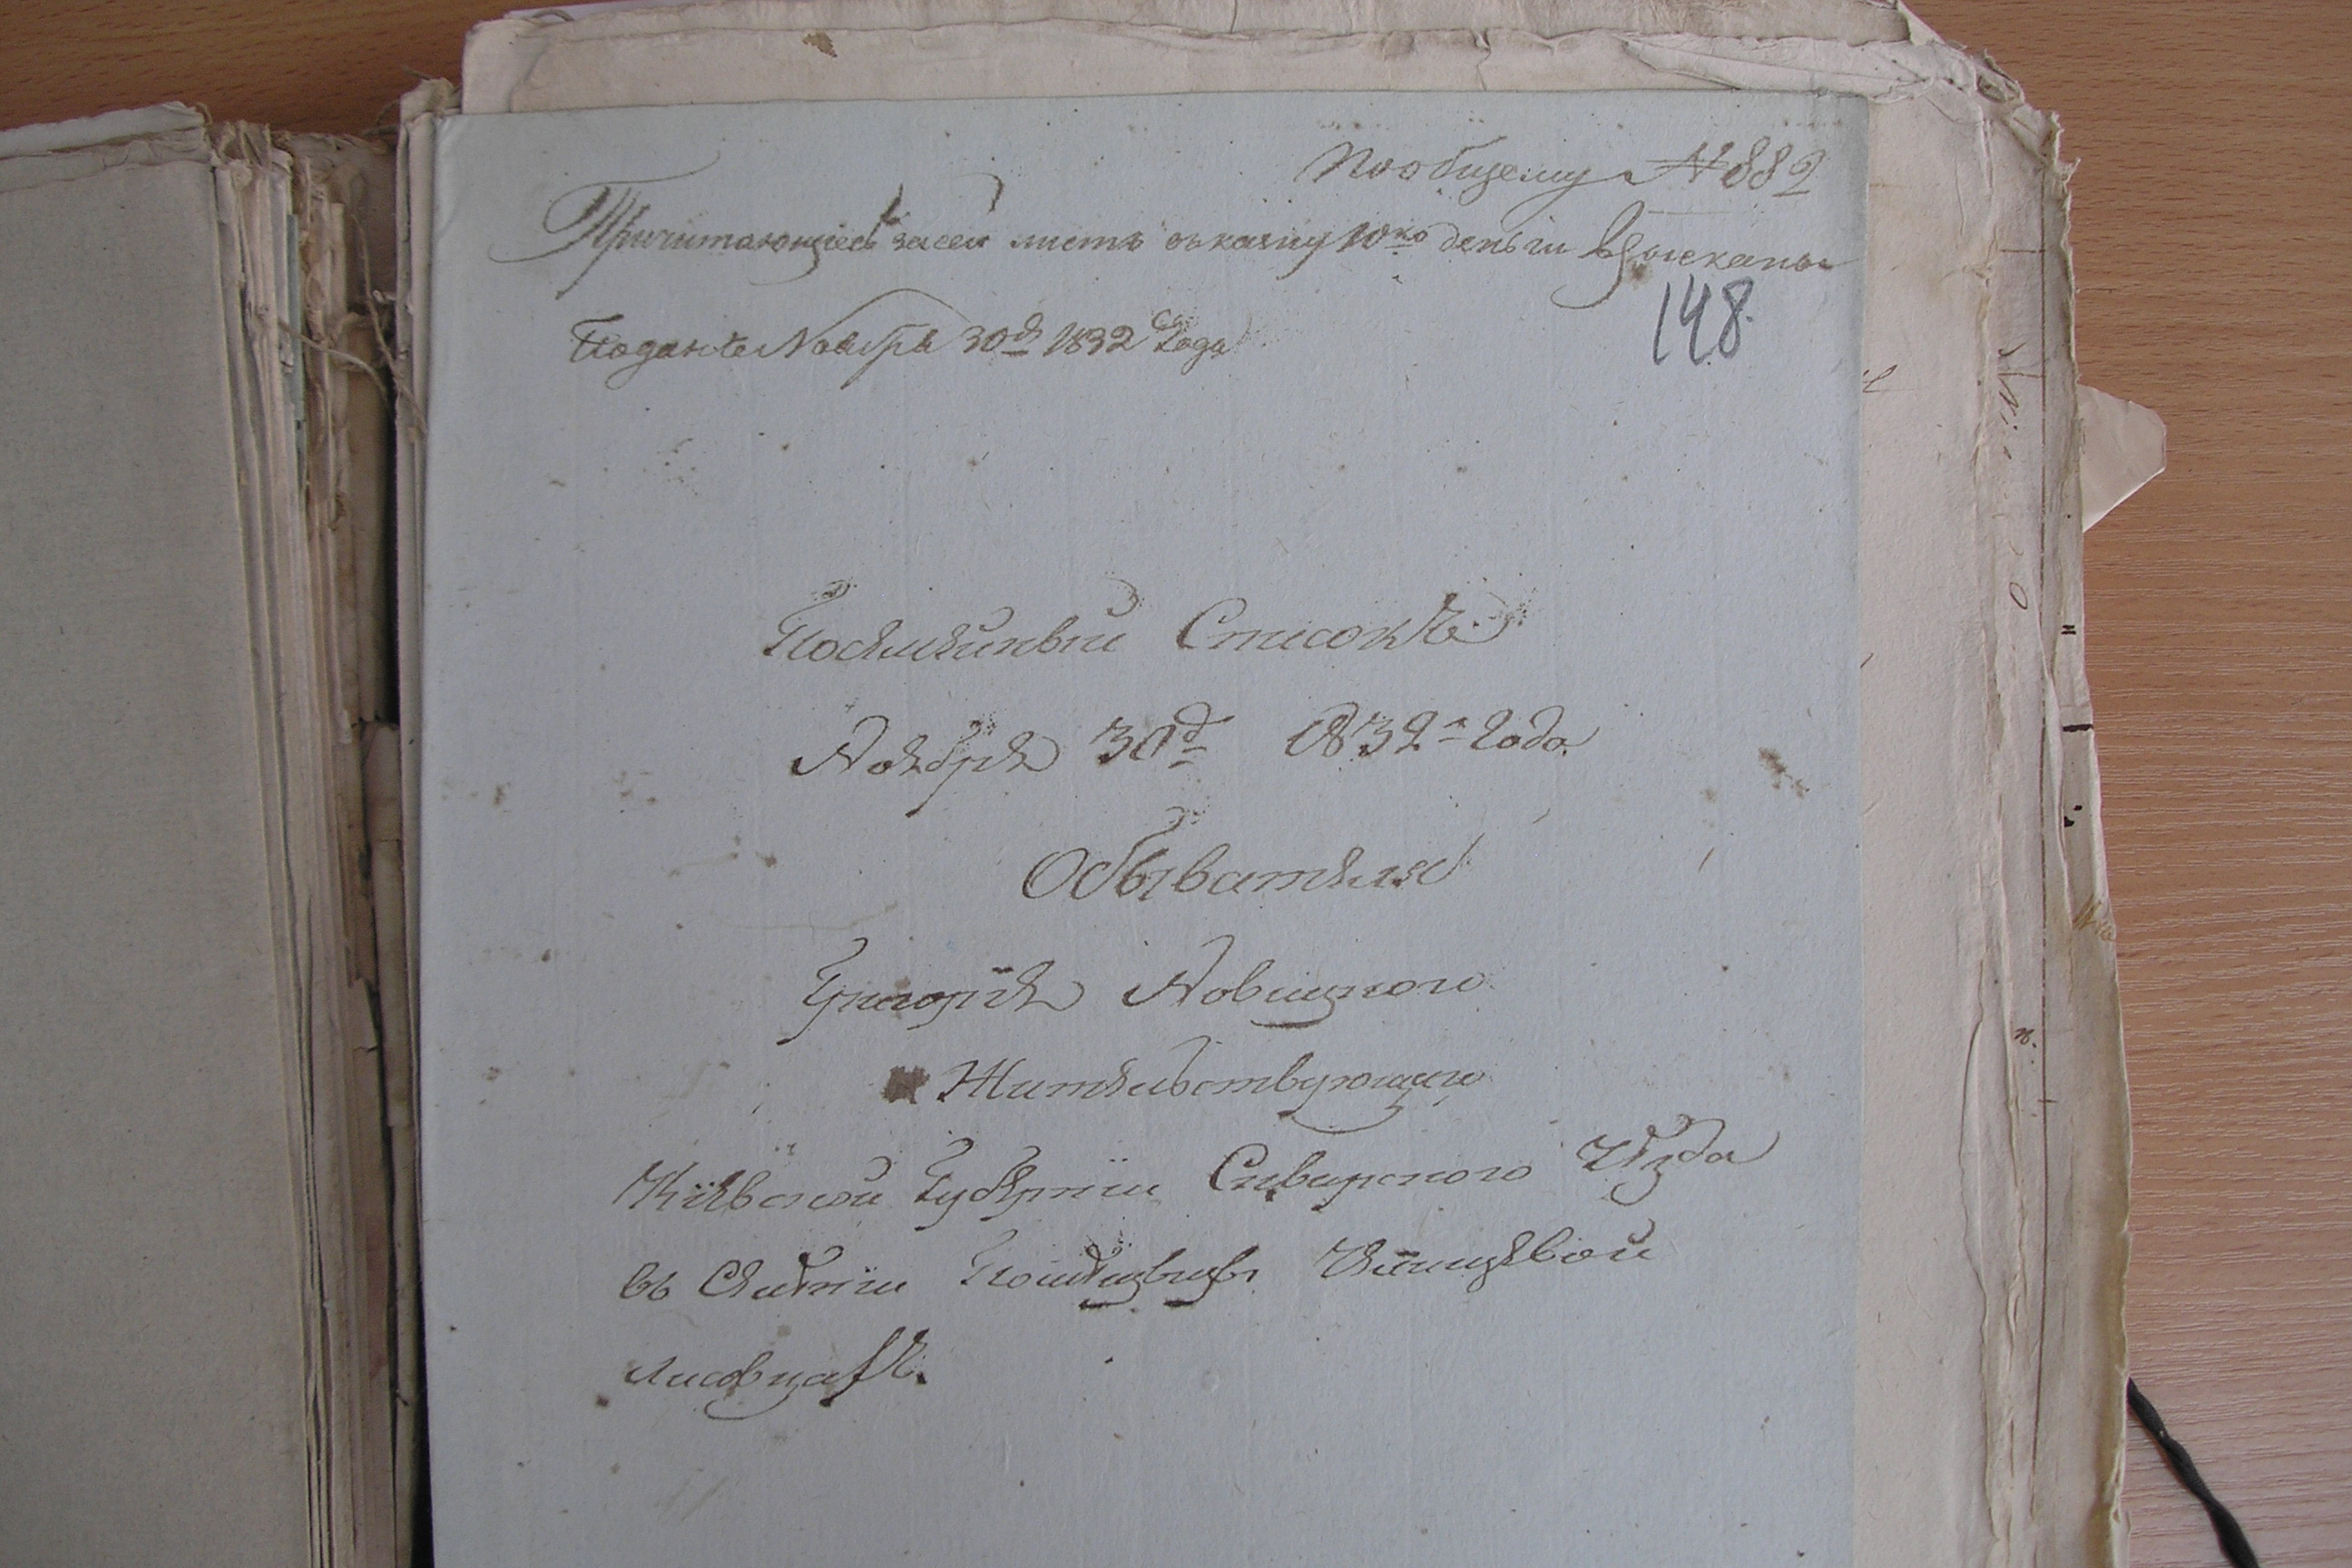 Пообщему №882
Причитающиесь засей листъ въказну 10ко деньги взысканы
148.
Поданъ Ноября 30д 1832 Года
Посемейный Списокъ
Ноября 30д 1832 года
Обывателя
Григорія Новицкого
Жительствующаго
Кіевской Губерніи Сквирского Уѣзда
въ Селеніи
Лисовцахъ.